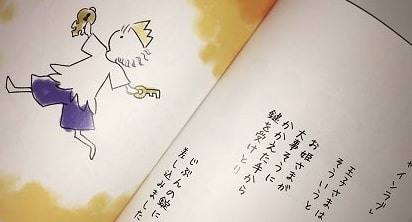 インラブ
王子さまは
そういうと
お姫さまが
大事そうに
かかえた手から
鍵を受けとり
じぶんの錠に
差し込みました